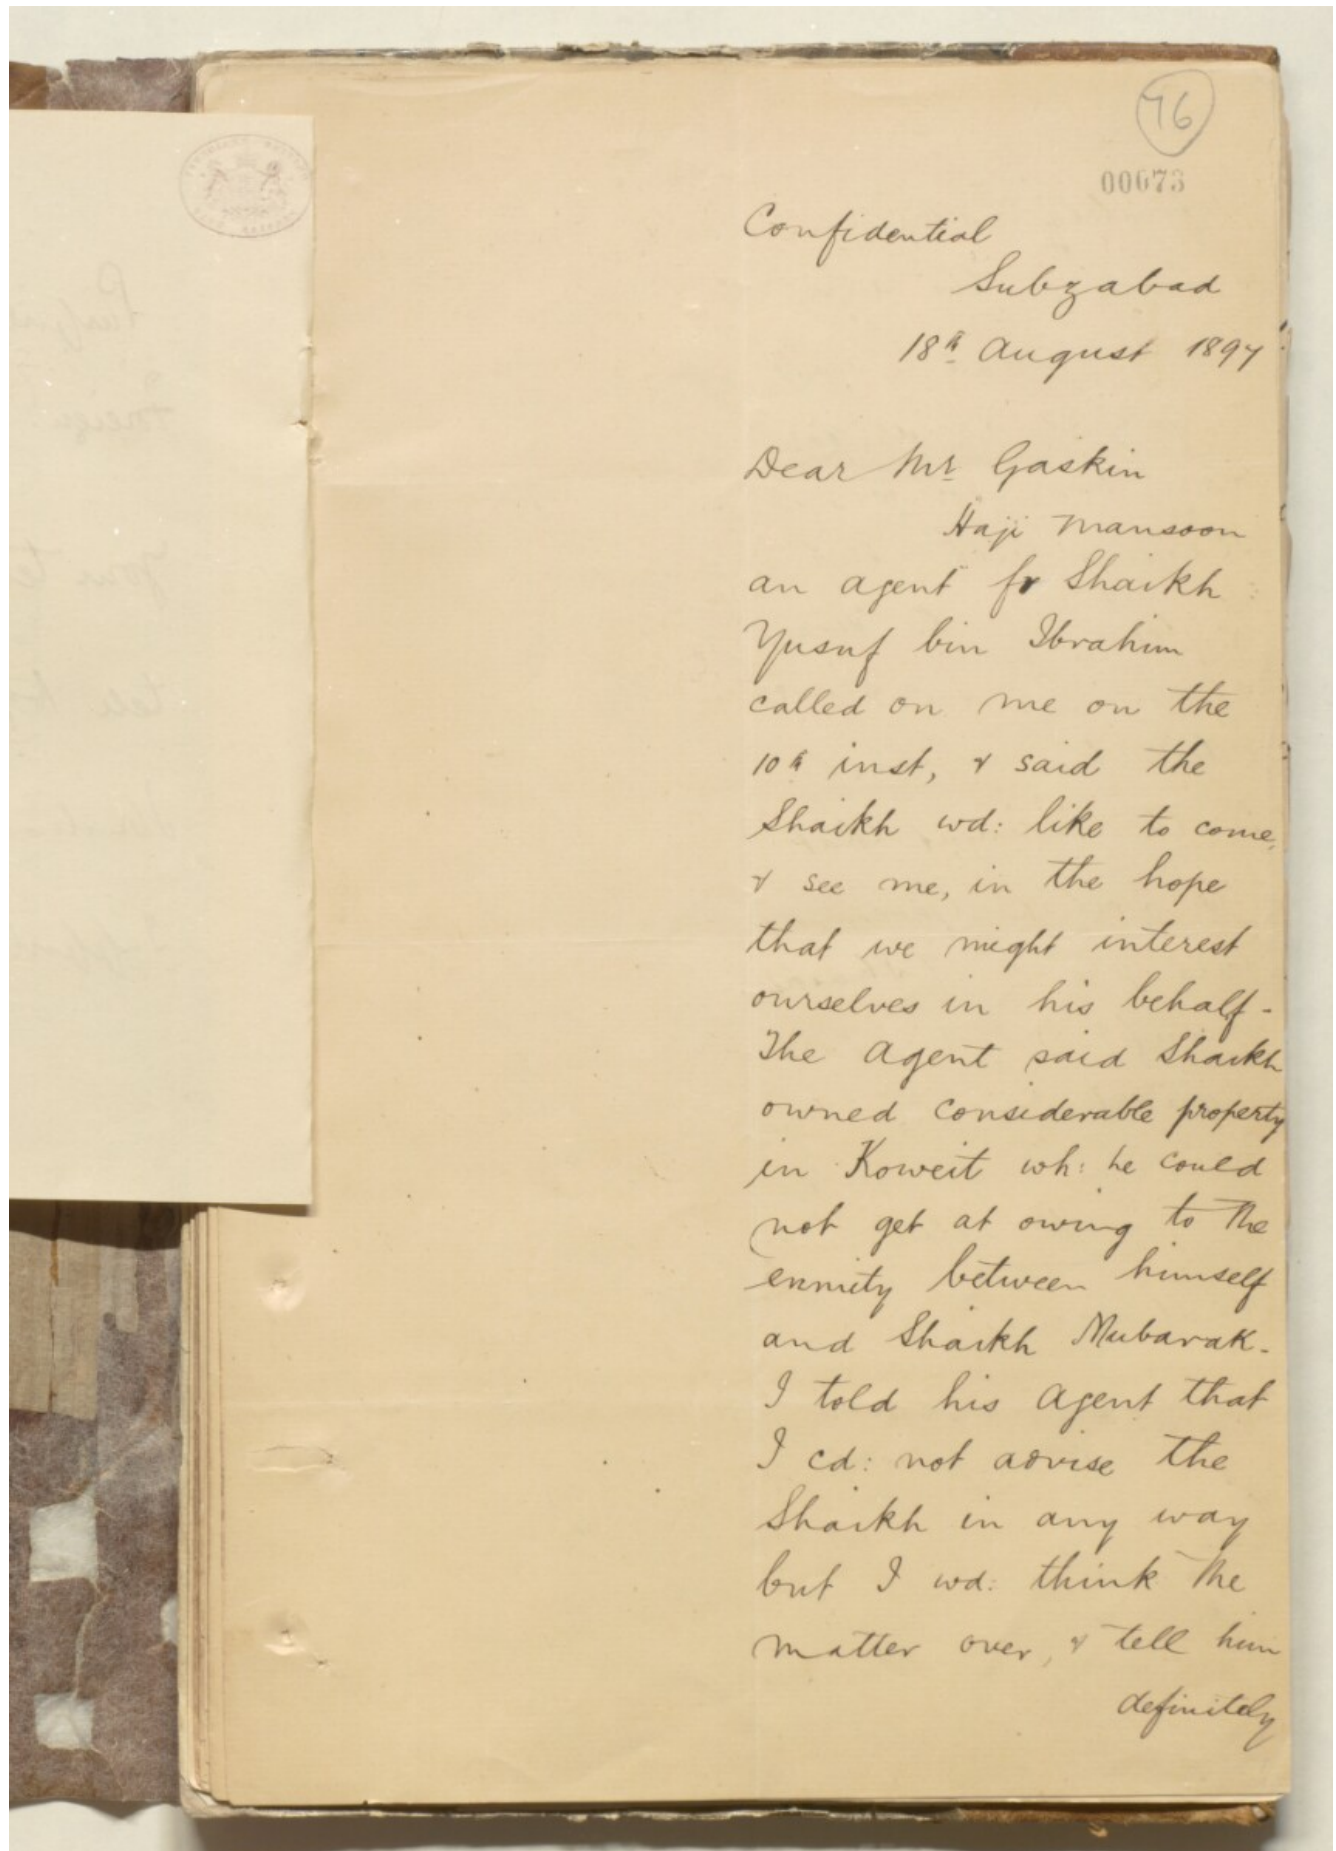 76
00073
Confidential
Subzabad
18th August 1897
Dear Mr Gaskin
Haji Mansoon
an agent fr Shaikh
Yusuf bin Ibrahim
called on me on the
10th inst, & said the
Shaikh wd: like to come
& see me, in the hope
that we might interest
ourselves in his behalf -
The Agent said Shaikh
owned considerable property
in Koweit wh: he could
not get at owing to the
enmity between himself
and Shaikh Mubarak -
I told his Agent that
I cd: not advise the
Shaikh in any way
but I wd: think the
matter over, & tell him
definitely